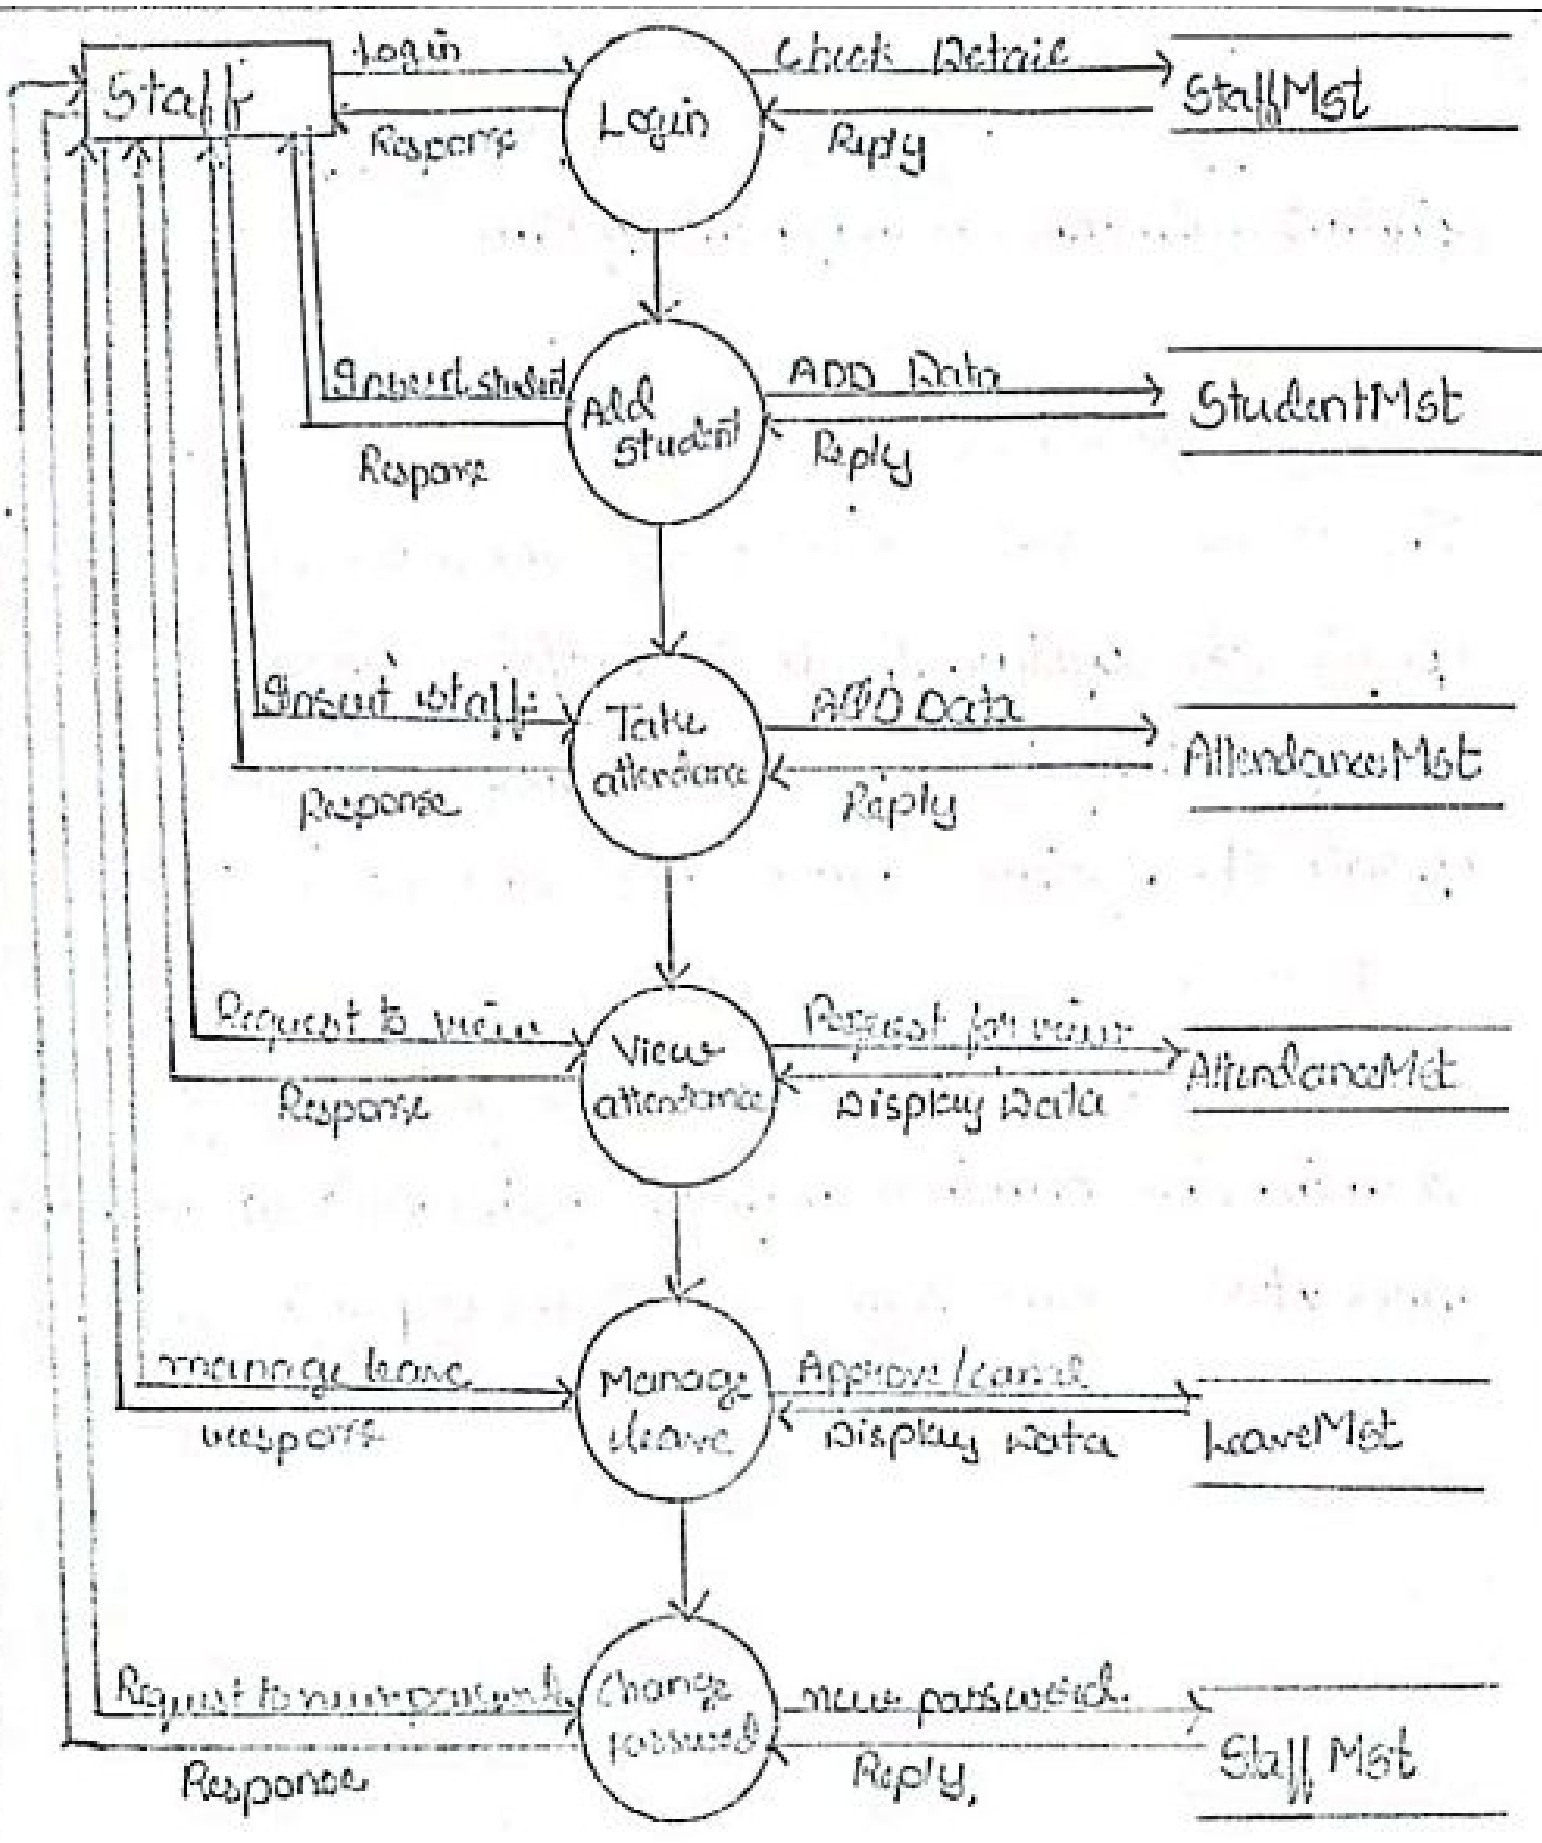 Staff
Login
Response
Login
Check Detail
Reply
StaffMst
Insert student
Response
Add
student
ADD Data
Reply
StudentMst
Insert staff
Response
Take
attendance
ADD Data
Reply
AttendanceMst
Request to view
Response
View
attendance
Request for view
Display Data
AttendanceMst
manage leave
response
Manage
leave
Approve/cancel
Display Data
LeaveMst
Request to new
Response
Change
password
new password
Reply.
Staff Mst